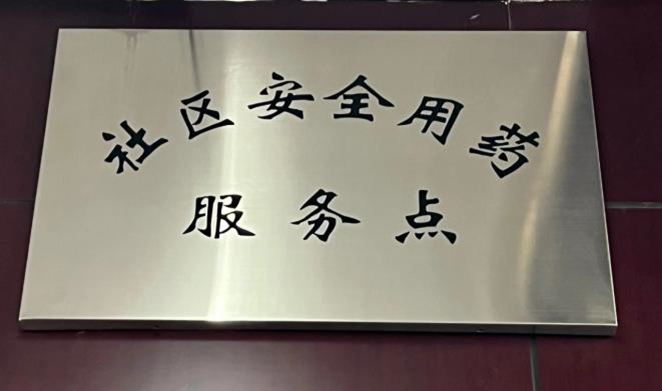 社区安全用药
服务点